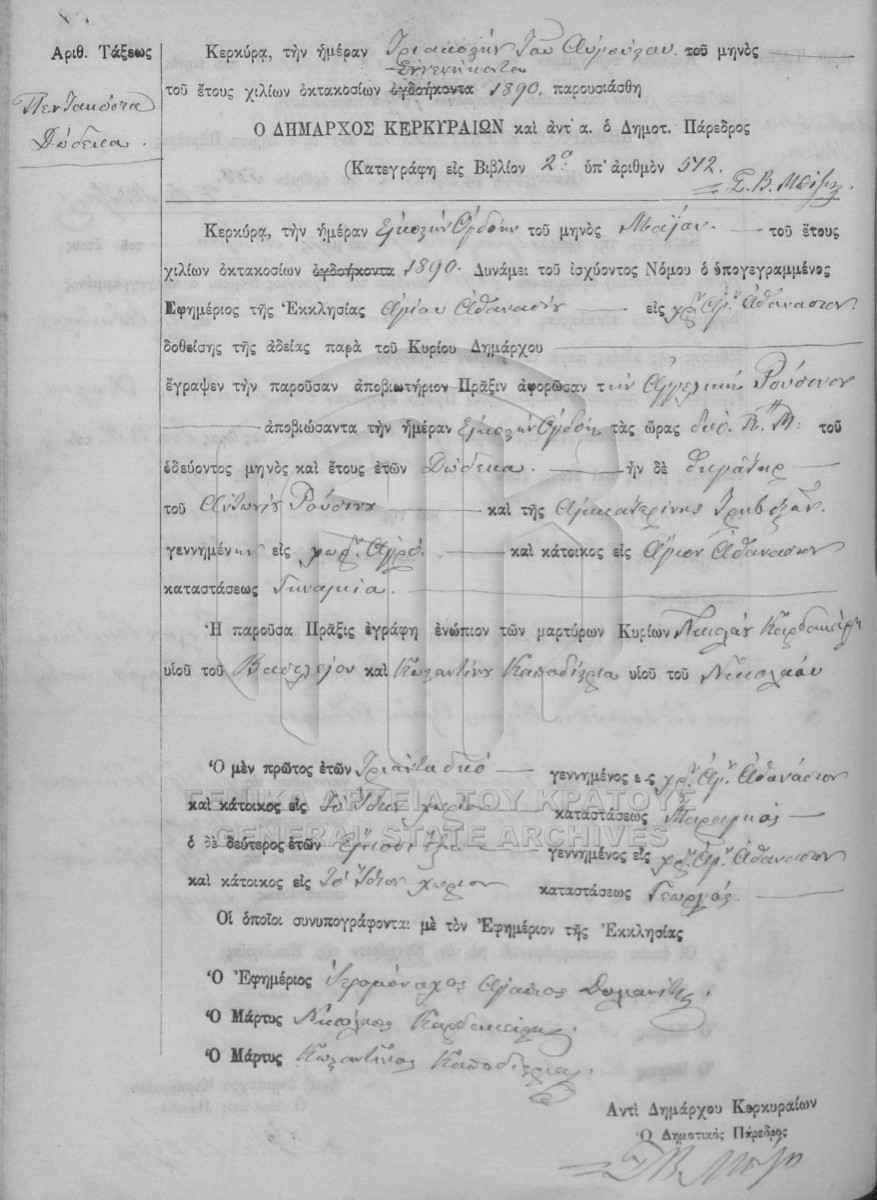 Αριθ. Τάξεως
Πεντακόσια
Δώδεκα.
Κερκύρᾳ, τὴν ἡμέραν Τριακοστὴν Του Αὐγούστου τοῦ μηνὸς
Ἐννενήκοντα
τοῦ ἔτους χιλίων ὀκτακοσίων ὀγδοήκοντα 1890. παρουσιάσθη
Ο ΔΗΜΑΡΧΟΣ ΚΕΡΚΥΡΑΙΩΝ καὶ ἀντ' α. ὁ Δημοτ. Πάρεδρος
(Κατεγράφη εἰς Βιβλίον 2ον ὑπ' ἀριθμὸν 512.
Κερκύρᾳ, τὴν ἡμέραν Εἰκοστὴν Ὀγδόην τοῦ μηνὸς Μαΐου τοῦ ἔτους
χιλίων ὀκτακοσίων ὀγδοήκοντα 1890. Δυνάμει τοῦ ἰσχύοντος Νόμου ὁ ὑπογεγραμμένος
Ἐφημέριος τῆς Ἐκκλησίας Ἁγίου Ἀθανασίου εἰς χρ. Ἁγ. Ἀθανάσιον
δοθείσης τῆς ἀδείας παρὰ τοῦ Κυρίου Δημάρχου
ἔγραψεν τὴν παροῦσαν ἀποβιωτήριον Πρᾶξιν ἀφορῶσαν τὴν Ἀγγελικὴν Ρούσινου
ἀποβιώσαντα τὴν ἡμέραν Εἰκοστὴν Ὀγδόην τὰς ὥρας δύο Π. Μ. τοῦ
ὁδεύοντος μηνὸς καὶ ἔτους ἐτῶν Δώδεκα. ἣν δὲ θυγάτηρ
τοῦ Ἀντωνίου Ρούσινου καὶ τῆς Αἰκατερίνης
γεννημένην εἰς χωρ. Ἀγρό. καὶ κάτοικος εἰς Ἅγιον Ἀθανάσιον
καταστάσεως
Ἡ παροῦσα Πρᾶξις ἐγράφη ἐνώπιον τῶν μαρτύρων Κυρίων Νικολάου Καρδακάρη
υἱοῦ τοῦ Βασιλείου καὶ Κωσταντίνου Καποδίστρια υἱοῦ τοῦ Νικολάου
Ὁ μὲν πρῶτος ἐτῶν Τριάντα δύο γεννημένος εἰς χρ. Ἁγ. Ἀθανάσιον
καὶ κάτοικος εἰς Τὸ Ἴδιον χωρίον καταστάσεως
ὁ δὲ δεύτερος ἐτῶν Εἴκοσι ἕξι γεννημένος εἰς χρ. Ἁγ. Ἀθανάσιον
καὶ κάτοικος εἰς Τὸ Ἴδιον χωρίον καταστάσεως Γεωργός.
Οἱ ὁποῖοι συνυπογράφονται μὲ τὸν Ἐφημέριον τῆς Ἐκκλησίας
Ὁ Ἐφημέριος Ἱερομόναχος
Ὁ Μάρτυς Νικόλαος Καρδακάρης.
Ὁ Μάρτυς Κωσταντίνος Καποδίστριας.
Αντὶ Δημάρχου Κερκυραίων
Ὁ Δημοτικὸς Πάρεδρος
ΓΕΝΙΚΑ ΑΡΧΕΙΑ ΤΟΥ ΚΡΑΤΟΥΣ
GENERAL STATE ARCHIVES